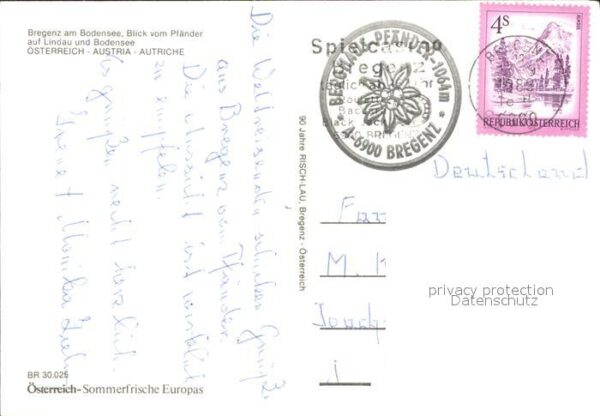 Bregenz am Bodensee, Blick vom Pfänder
auf Lindau und Bodensee
ÖSTERREICH - AUSTRIA - AUTRICHE
Die Weltreisenden schicken Grüße
aus Bregenz vom Pfänder.
Die Aussicht ist wirklich
zu empfehlen.
Es grüßen recht herzlich
Irene + Monika
BR 30.025
Österreich-Sommerfrische Europas
90 Jahre RISCH-LAU, Bregenz - Österreich
Spielcasino
BERGHAUS PFÄNDER-1064m
A-6900 BREGENZ
4S
REPUBLIK ÖSTERREICH
Deutschland
Fam
M.
j
privacy protection
Datenschutz